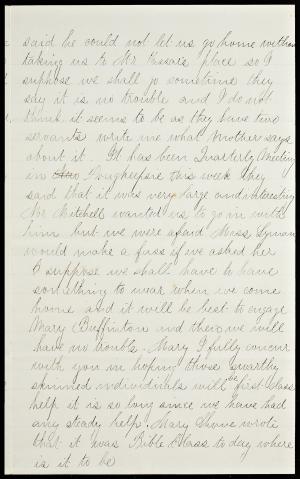 said he could not let us go home without
taking us to Mr Vassar's place so I
suppose we shall go sometime they
say it is no trouble and I do not
think it seems to be as they have two
servants write me what Mother says
about it. It has been Quarterly Meeting
in Poughkeepsie this week they
said that it was very large and interesting
Mr Mitchell wanted us to go in with
him but we were afraid Miss Lyman
would make a fuss if we asked her
I suppose we shall have to have
something to wear when we come
home and it will be best to engage
Mary Buffinton and then we will
have no trouble. Mary I fully concur
with you in hoping those swarthy
skinned individuals will be first class
help it is so long since we have had
any steady help. Mary wrote
that it was Bible Class to day where
is it to be